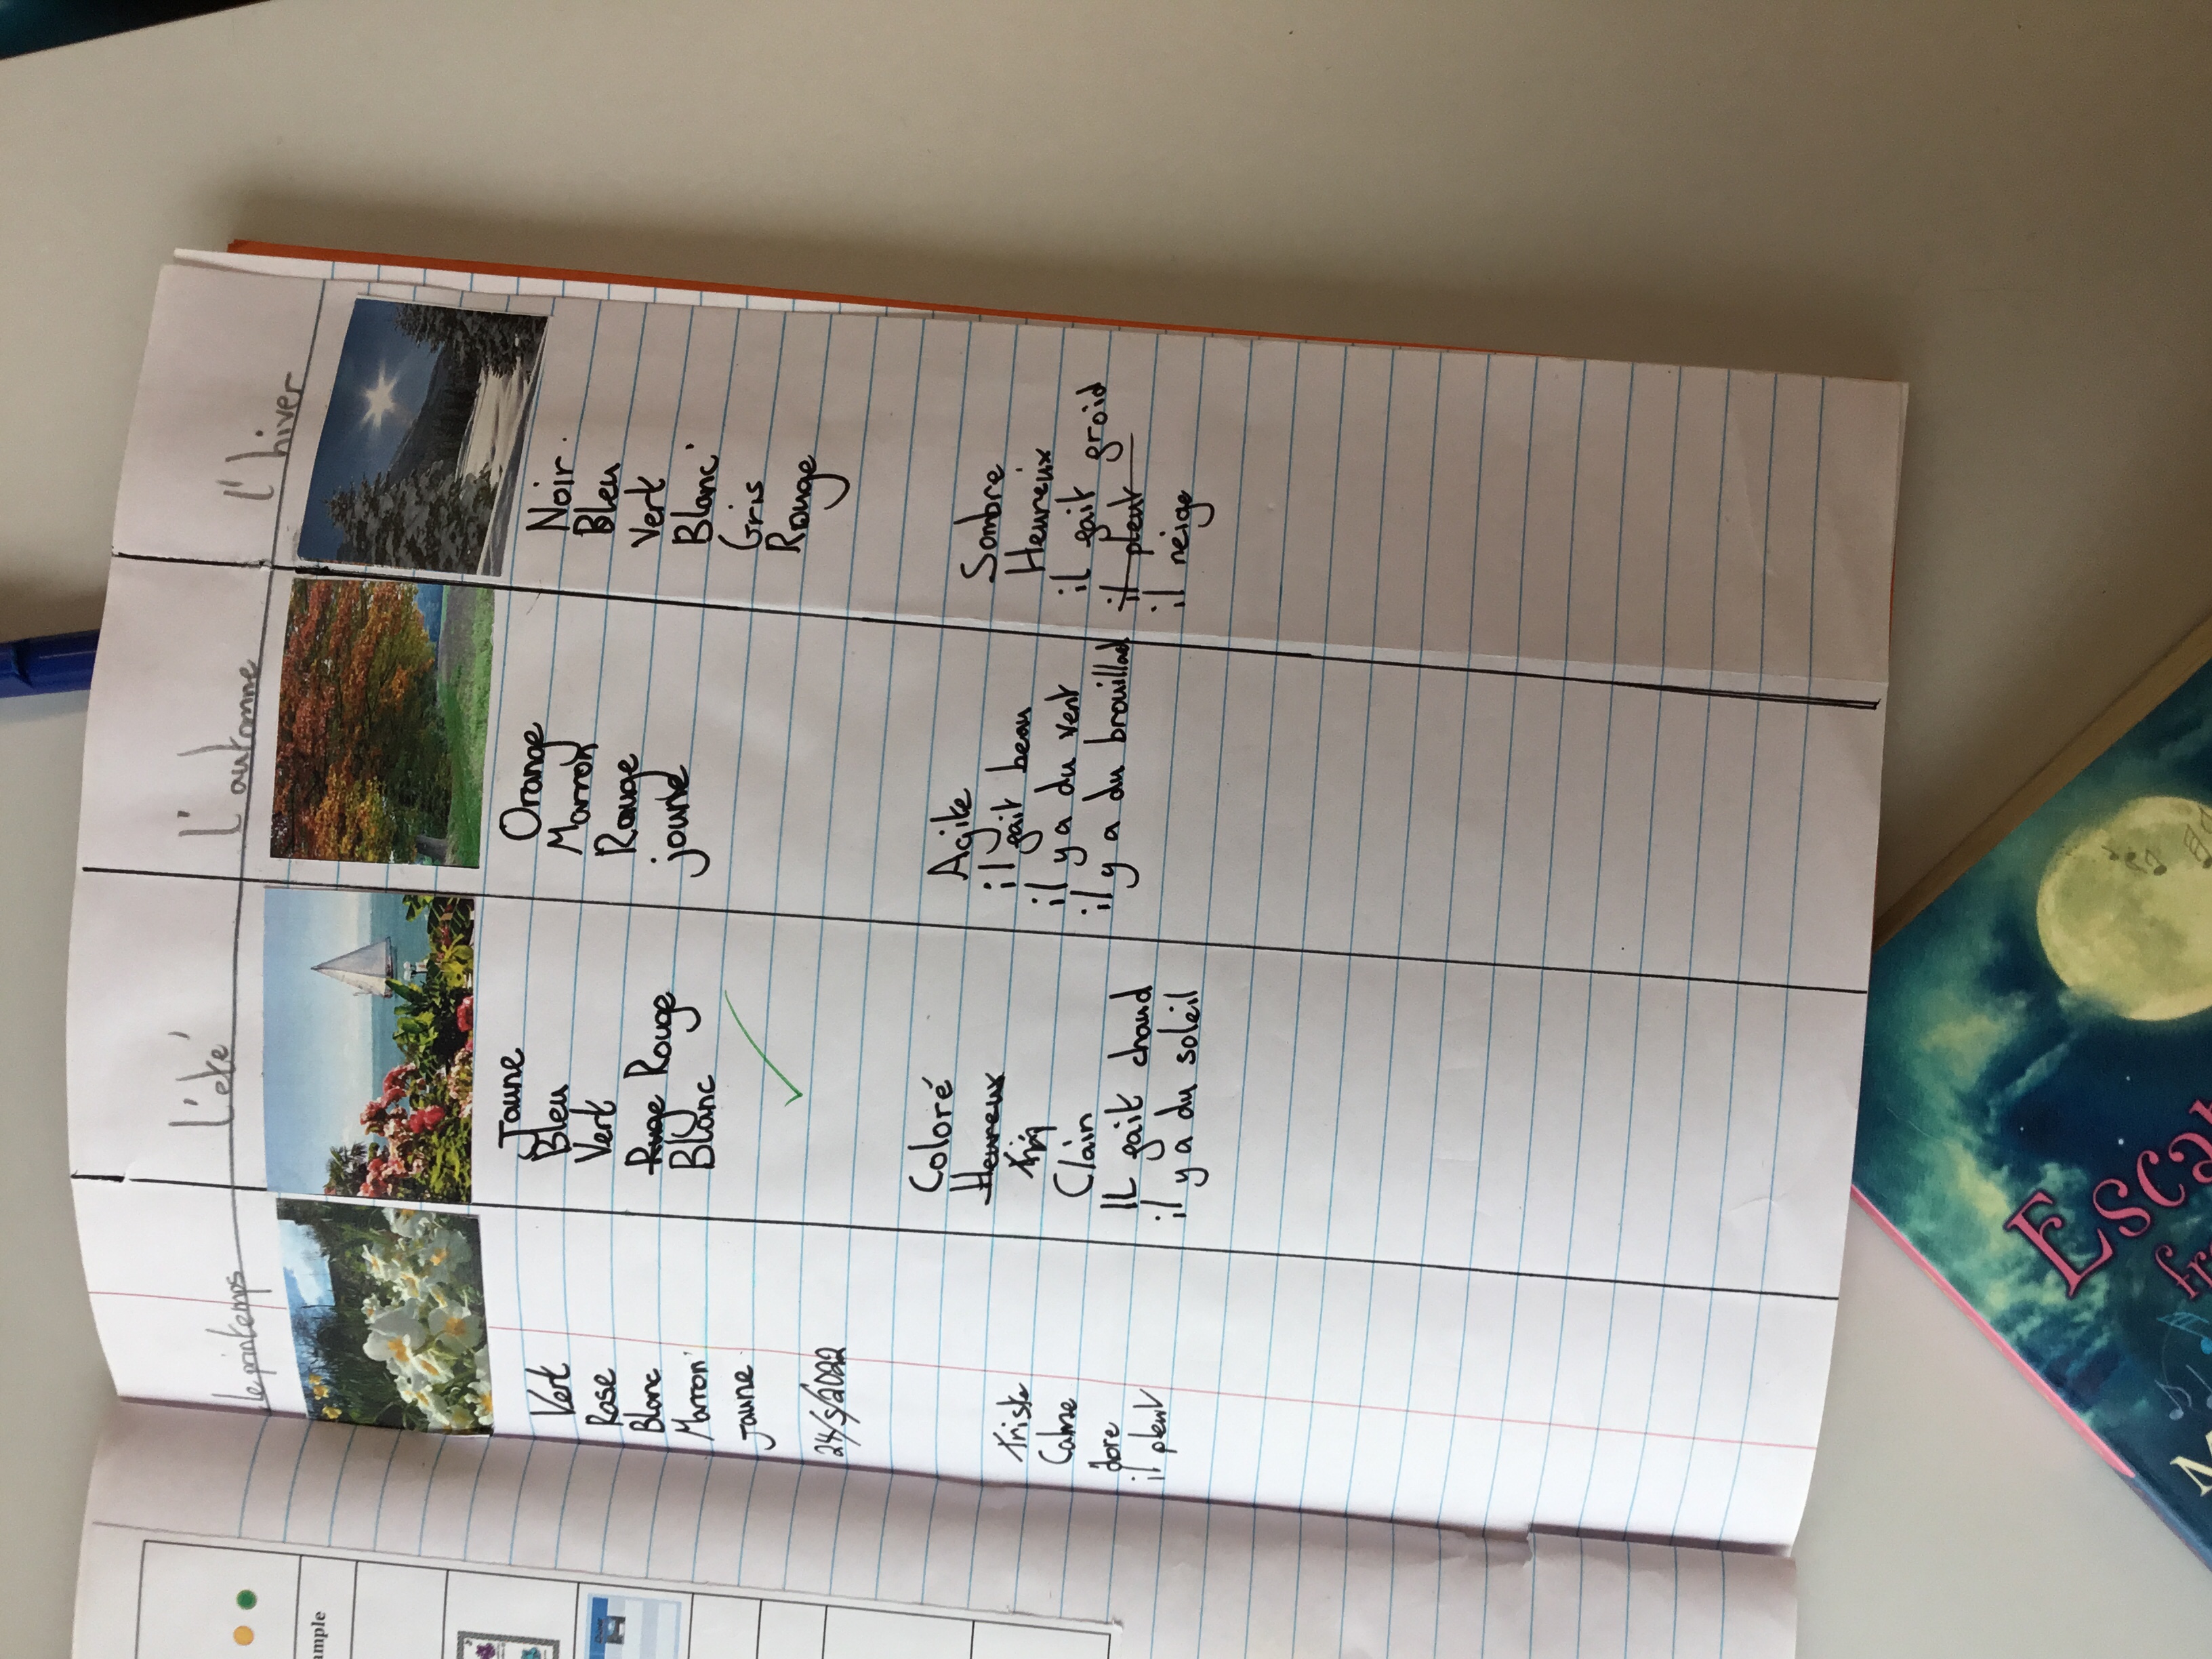 le printemps
Vert
Rose
Blanc
Marron
jaune
24/5/2022
triste
Calme
dore
il pleut
L'été
Jaune
Bleu
Vert
Ruge Rouge
Blanc
Coloré
Heureux
Clain
IL fait chaud
il y a du soleil
L'automne
Orange
Marron
Rouge
joune
Agite
il fait beau
il y a du vent
il y a du brouillad
L'hiver
Noir
Bleu
Vert
Blanc
Gris
Rouge
Sombre
Heureux
il fait froid
il pleut
il neige
ample
Esca
fr